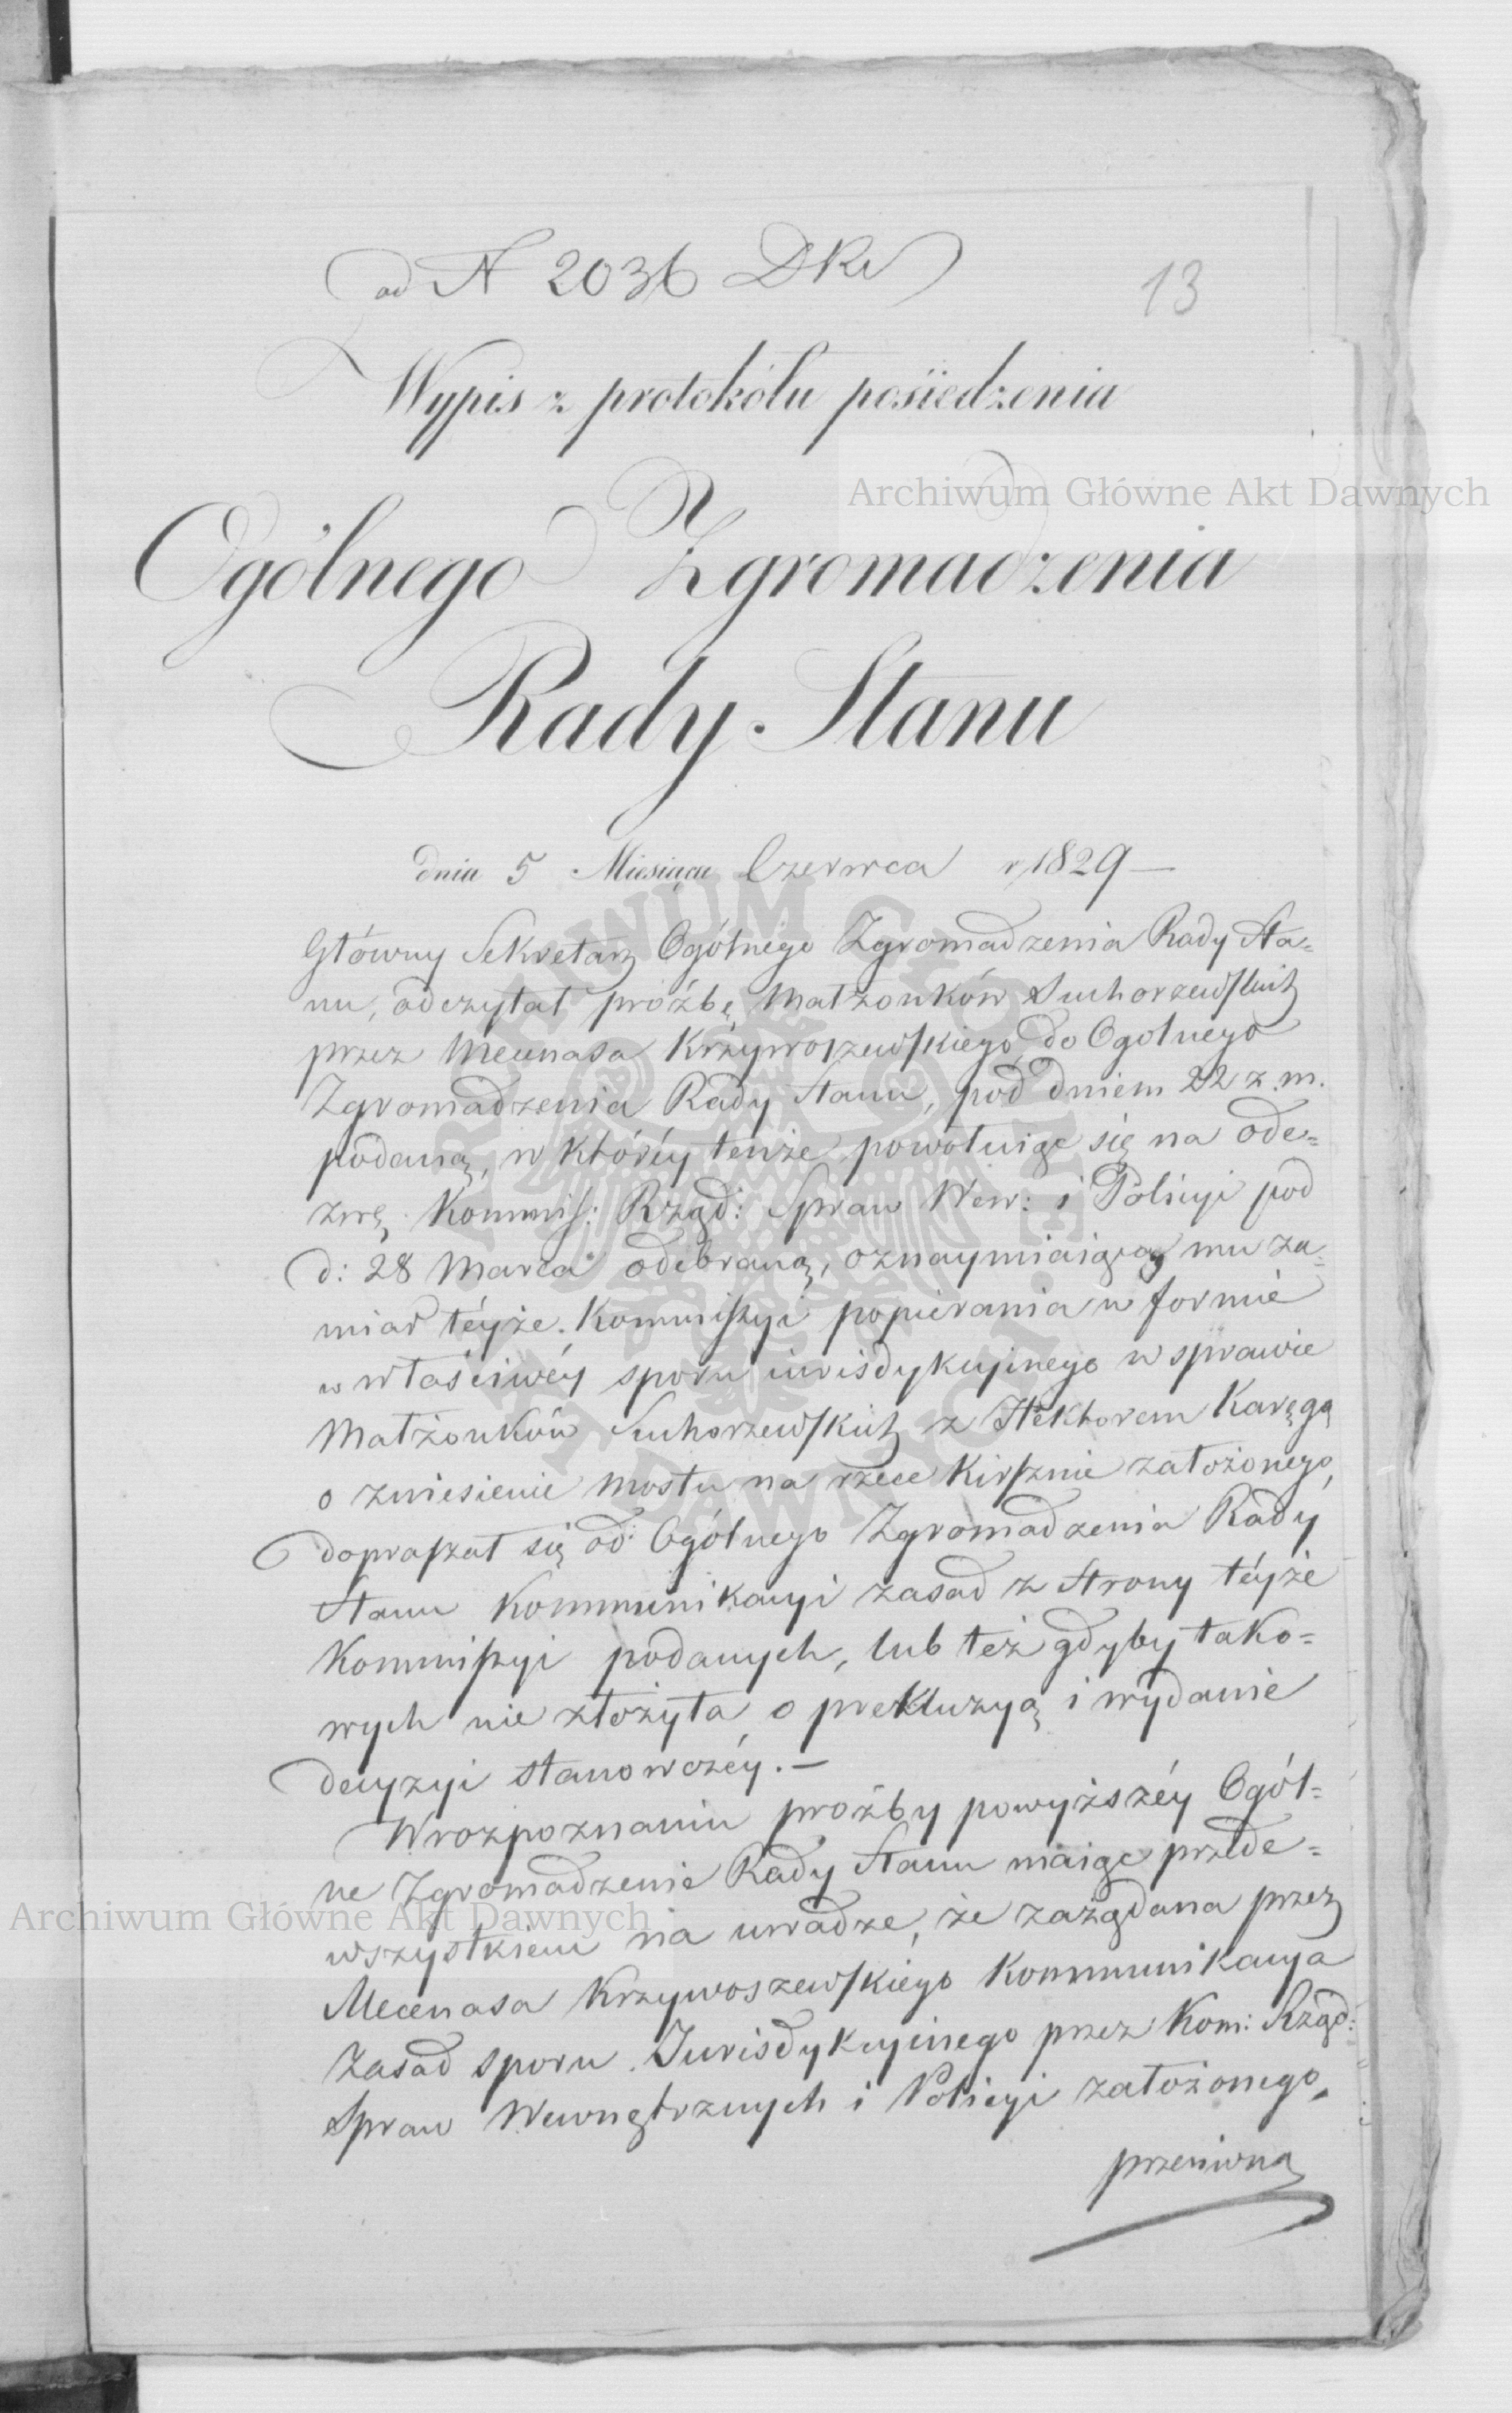 ad N 2036 DKr
13
Wypis z protokółu posiedzenia
Archiwum Główne Akt Dawnych
Ogólnego Zgromadzenia
Rady Stanu
dnia 5 Miesiąca Czerwca r 1829 —
Główny Sekretarz Ogólnego Zgromadzenia Rady Sta=
nu, odczytał proźbę Małżonków Suchorzewskich
przez Mecenasa Krzywoszewskiego do Ogólnego
Zgromadzenia Rady Stanu, pod dniem 22 z. m.
podaną, w któréy tenże powołuiąc się na ode=
zwę Kommiss: Rząd: Spraw Wew: i Policyi pod
d: 28 Marca odebraną, oznaymiaiącą mu za=
miar téyże Kommissyi popierania w formie
właściwéy sporu iurisdykcyinego w sprawie
Małżonków Suchorzewskich z Hektorem Karęgą
o zniesienie mostu na rzece Kirsznie założonego,
dopraszał się od Ogólnego Zgromadzenia Rady
Stanu Kommunikacyi zasad z strony téyże
Kommissyi podanych, lub też gdyby tako=
wych nie złożyła o prekluzyą i wydanie
decyzyi stanowczéy. —
W rozpoznaniu proźby powyższéy Ogól=
ne Zgromadzenie Rady Stanu maiąc przede=
wszystkiem na uwadze, że zażądana przez
Archiwum Główne Akt Dawnych
Mecenasa Krzywoszewskiego Kommunikacya
zasad sporu Jurisdykcyinego przez Kom: Rząd:
Spraw Wewnętrznych i Policyi założonego,
przeciwną